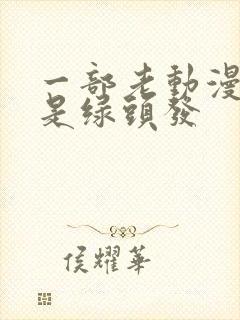 一部老動漫
是綠頭發
侯耀華